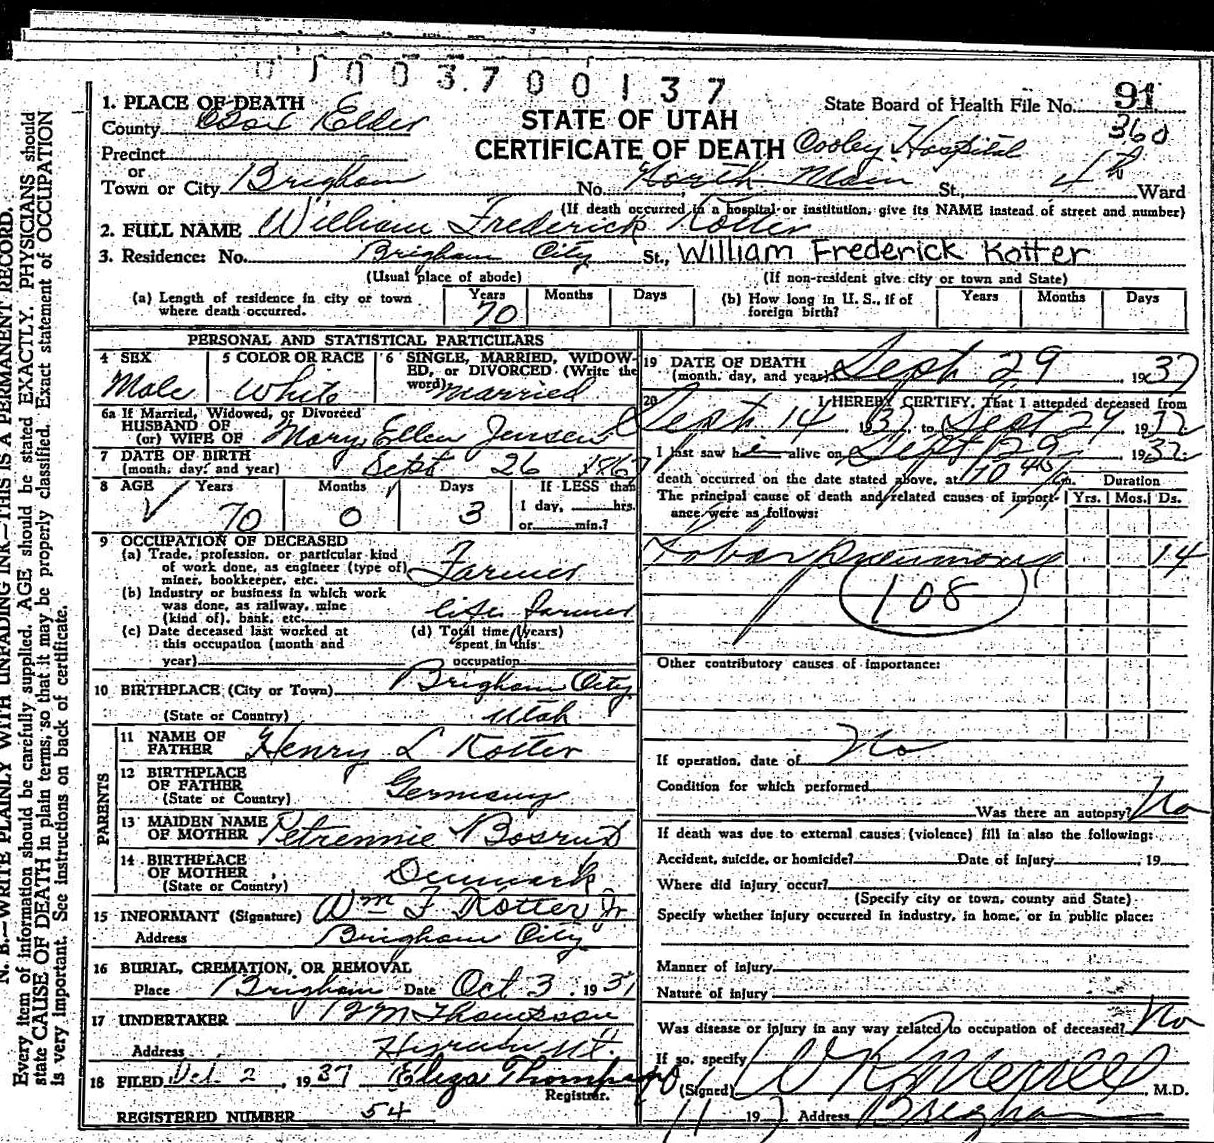 01003700137
State Board of Health File No. 91
360
1. PLACE OF DEATH
County Box Elder
STATE OF UTAH
CERTIFICATE OF DEATH
Cooley Hospital
Precinct
or
Town or City Brigham No. North Main St. 4th Ward
(If death occurred in a hospital or institution, give its NAME instead of street and number)
2. FULL NAME William Frederick Kotter
3. Residence: No. Brigham City St., William Frederick Kotter
(Usual place of abode) (If non-resident give city or town and State)
(a) Length of residence in city or town where death occurred. Years 70 Months Days
(b) How long in U. S., if of foreign birth? Years Months Days
PERSONAL AND STATISTICAL PARTICULARS
4 SEX Male
5 COLOR OR RACE White
6 SINGLE, MARRIED, WIDOWED, or DIVORCED (Write the word) Married
6a If Married, Widowed, or Divorced
HUSBAND OF
(or) WIFE OF Mary Ellen Jensen
7 DATE OF BIRTH
(month, day, and year) Sept 26 1867
8 AGE Years 70 Months 0 Days 3 If LESS than
1 day, hrs.
or min.?
9 OCCUPATION OF DECEASED
(a) Trade, profession, or particular kind
of work done, as engineer (type of)
miner, bookkeeper, etc. Farmer
(b) Industry or business in which work
was done, as railway, mine
(kind of), bank, etc. life farmer
(c) Date deceased last worked at
this occupation (month and
year)
(d) Total time (years)
spent in this
occupation
10 BIRTHPLACE (City or Town) Brigham City
(State or Country) Utah
PARENTS
11 NAME OF
FATHER Henry L Kotter
12 BIRTHPLACE
OF FATHER
(State or Country) Germany
13 MAIDEN NAME
OF MOTHER
14 BIRTHPLACE
OF MOTHER
(State or Country) Denmark
15 INFORMANT (Signature) Wm F Kotter Jr
Address Brigham City
16 BURIAL, CREMATION, OR REMOVAL
Place Brigham Date Oct 3, 1937
17 UNDERTAKER
Address
18 FILED Oct. 2, 1937 Eliza Thompson
Registrar.
REGISTERED NUMBER 54
19 DATE OF DEATH
(month, day, and year) Sept 29 1937
20 I HEREBY CERTIFY, That I attended deceased from
Sept 14 1937, to Sept 1937
I last saw him alive on Sept 29 1937
death occurred on the date stated above, at 10 45 m. Duration
The principal cause of death and related causes of importance were as follows: Yrs. Mos. Ds.
Lobar Pneumonia 14
108
Other contributory causes of importance:
If operation, date of No
Condition for which performed
Was there an autopsy? No
If death was due to external causes (violence) fill in also the following:
Accident, suicide, or homicide? Date of injury , 19
Where did injury occur?
(Specify city or town, county and State)
Specify whether injury occurred in industry, in home, or in public place:
Manner of injury
Nature of injury
Was disease or injury in any way related to occupation of deceased? No
If so, specify
(Signed) M.D.
19 Address Brigham
N. B.—WRITE PLAINLY WITH UNFADING INK—THIS IS A PERMANENT RECORD.
Every item of information should be carefully supplied. AGE should be stated EXACTLY. PHYSICIANS should
state CAUSE OF DEATH in plain terms, so that it may be properly classified. Exact statement of OCCUPATION
is very important. See instructions on back of certificate.